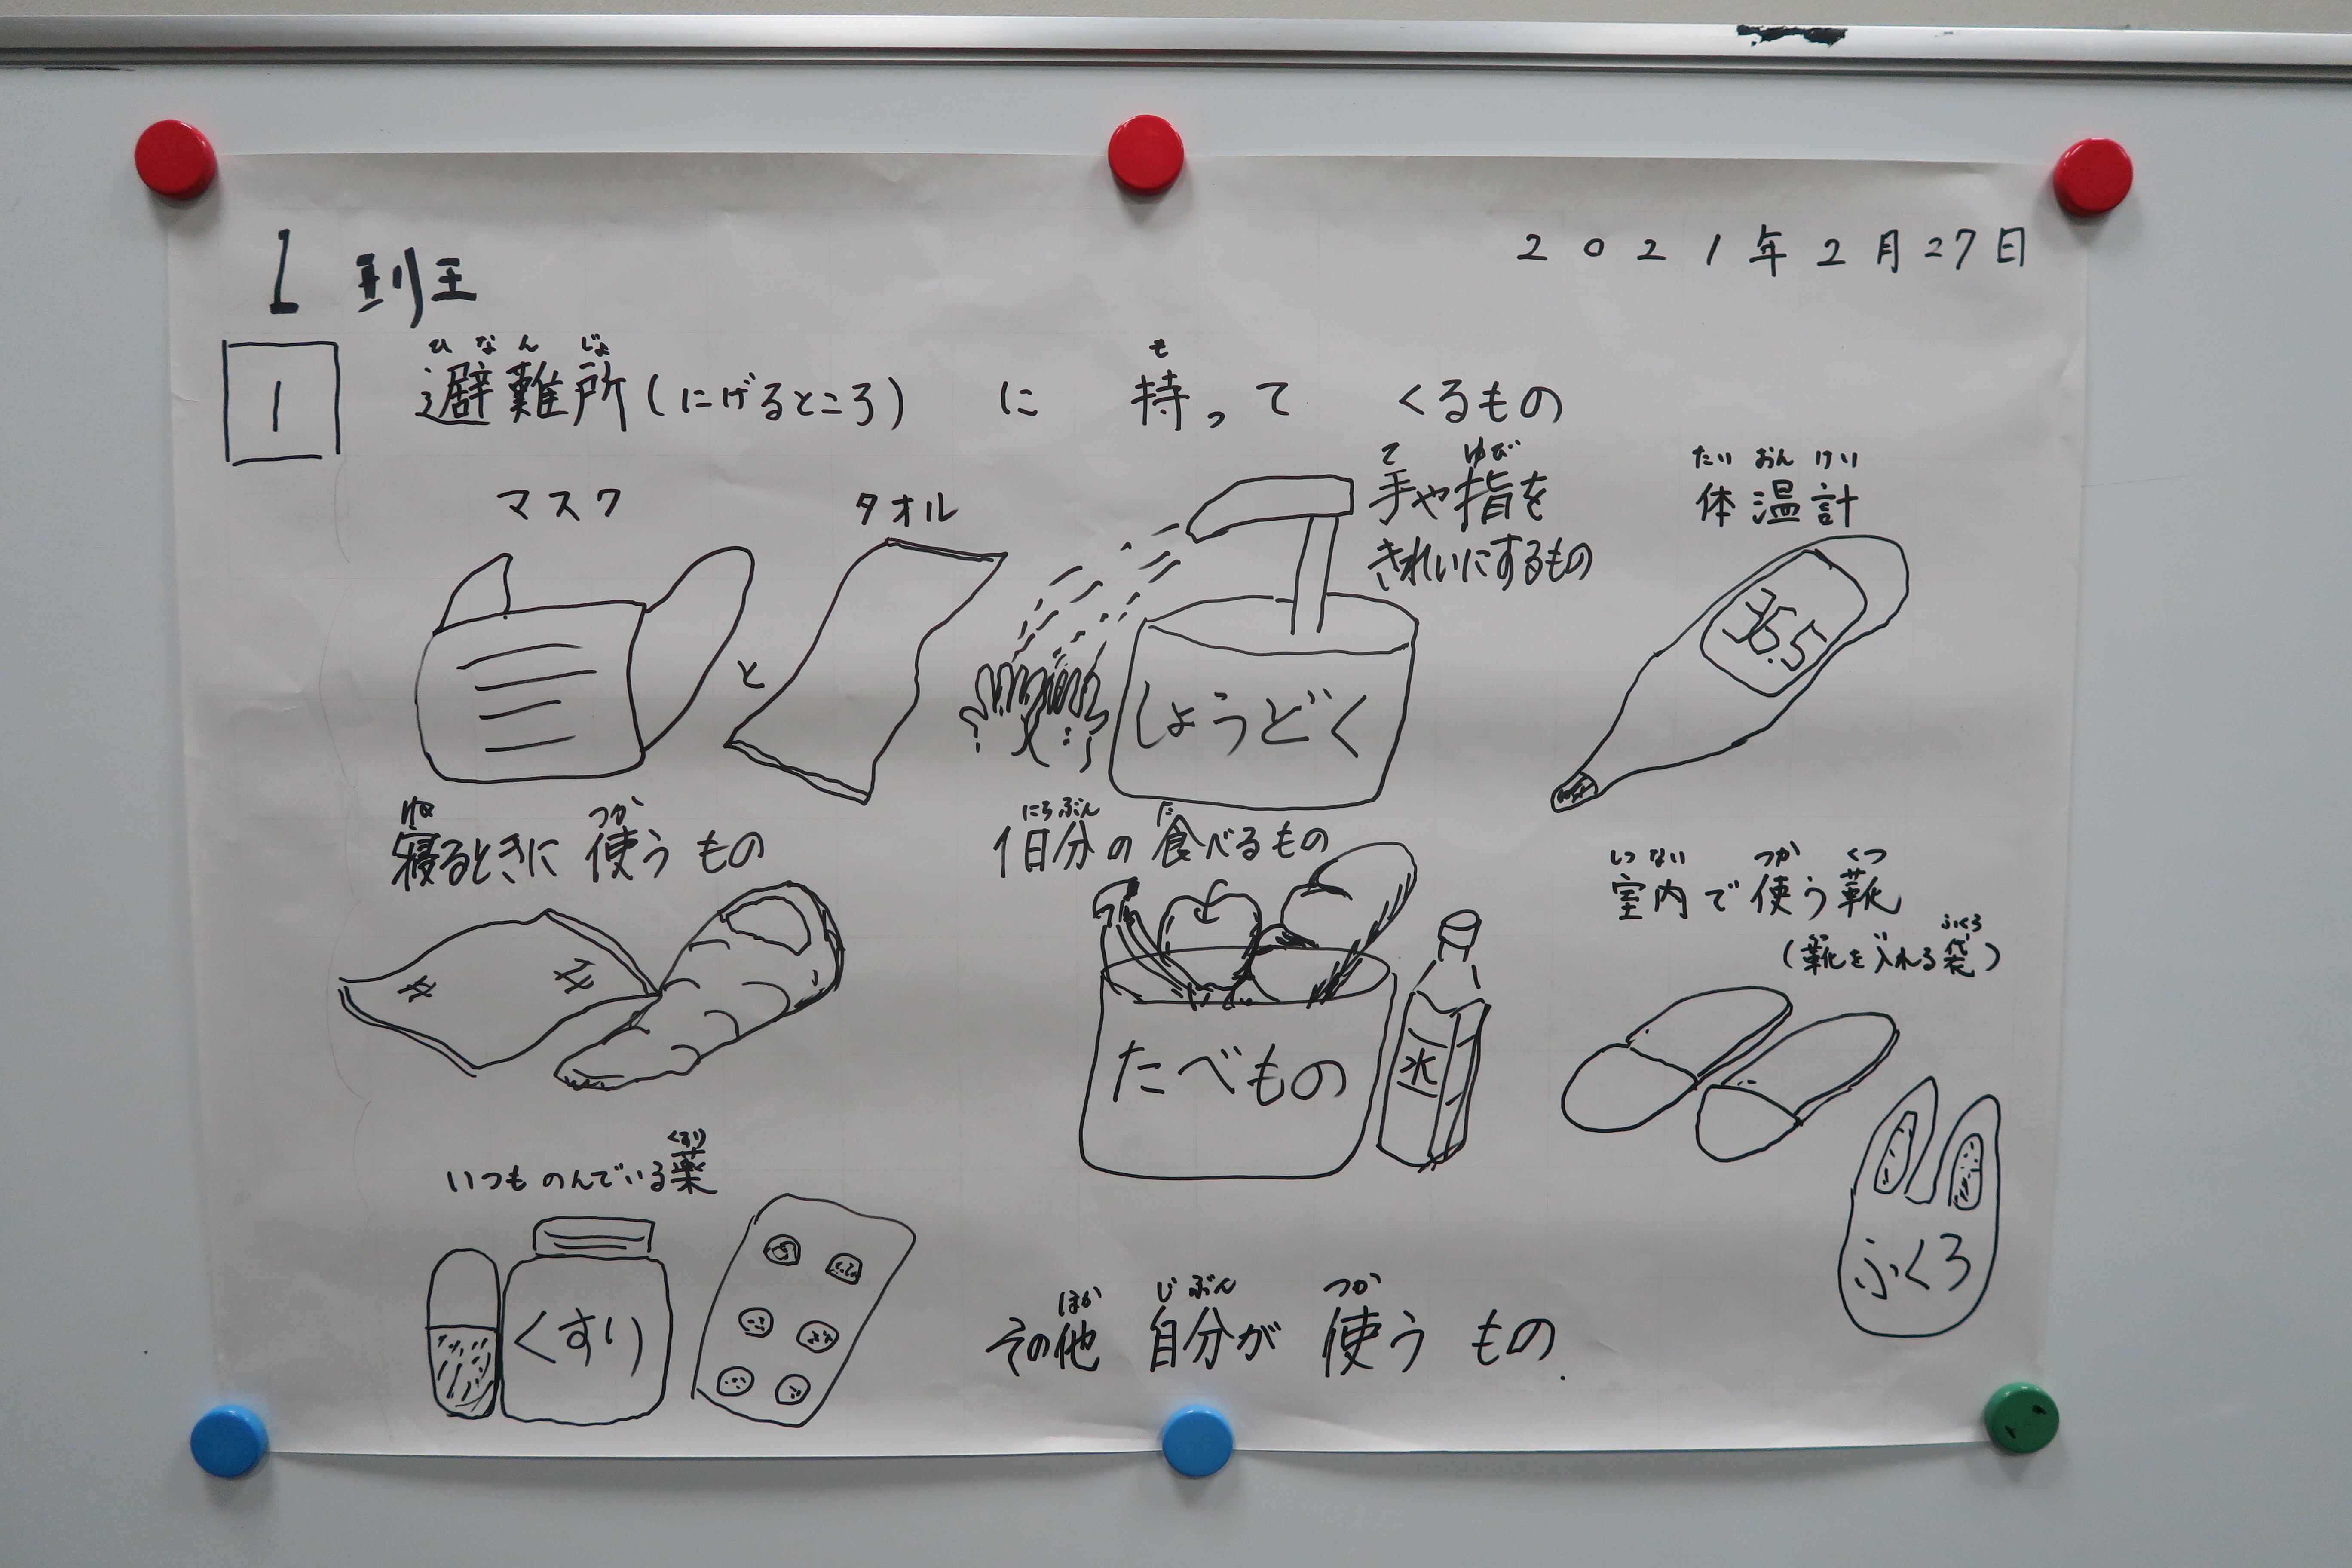 1 班
2021年2月27日
1
ひ な ん じょ も
避難所(にげるところ) に 持って くるもの
マスク
と
タオル
て ゆび
手や指を
きれいにするもの
しょうどく
たい おん けい
体温計
36.5
ね つか
寝るときに 使う もの
にちぶん た
1日分の 食べるもの
たべもの
水
しつ ない つか くつ
室内で使う靴
い ふくろ
(靴を入れる袋)
ふくろ
くすり
いつも のんでいる薬
くすり
ほか じ ぶん つか
その他 自分が 使う もの.